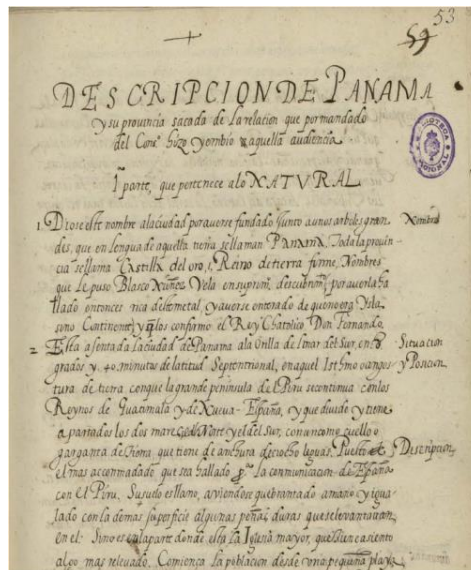 53
59
DESCRIPCION DE PANAMA
y su provincia sacada de la relacion que por mandado
del Cons.º hizo y embio aquella audiencia
1ª parte, que pertenece a lo NATVRAL
1. Diose este nombre a la ciudad por averse fundado junto a unos arboles gran- Nombre
des, que en lengua de aquella tierra se llaman PANAMA. Toda la provin-
cia se llama Castilla del oro, i Reino de tierra firme, Nombres
que le puso Blasco Nuñez Vela en su primº descubrimº por averla ha
llado entonces rica deste metal, y averse enterado de que no era Ysla
sino Continente, y q los confirmo el Rey Chatolico Don Fernando.
2 Esta asentada la ciudad de Panama a la Orilla del mar del Sur, en 8 Situacion
grados y .40. minutos de latitud Septentrional, en aquel Isthmo o angos- y Posicion
tura de tierra con que la grande peninsula del Piru se continua con los
Reynos de Guatimala y de Nueva-España, y que divide y tiene
apartados los dos mares del Norte y el del Sur, con un como cuello o
garganta de tierra, que tiene de anchura deciocho leguas. Puesto Descripcion
el mas acommodado que se a hallado pª la communicacion de España
con el Piru. Su suelo es llano, aviendose quebrantado a mano y igua-
lado con la demas superficie algunas peñas duras que se levantavan
en el: Sino es en la parte donde esta la Iglesia mayor, que tiene asiento
algo mas relevado. Comiença la poblacion desde una pequeña playa